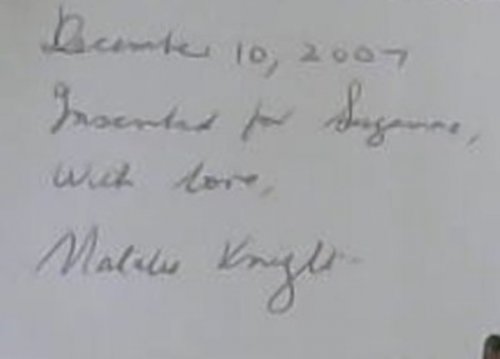 December 10, 2007
Inscribed for Suzanne,
With love,
Natalie Knight